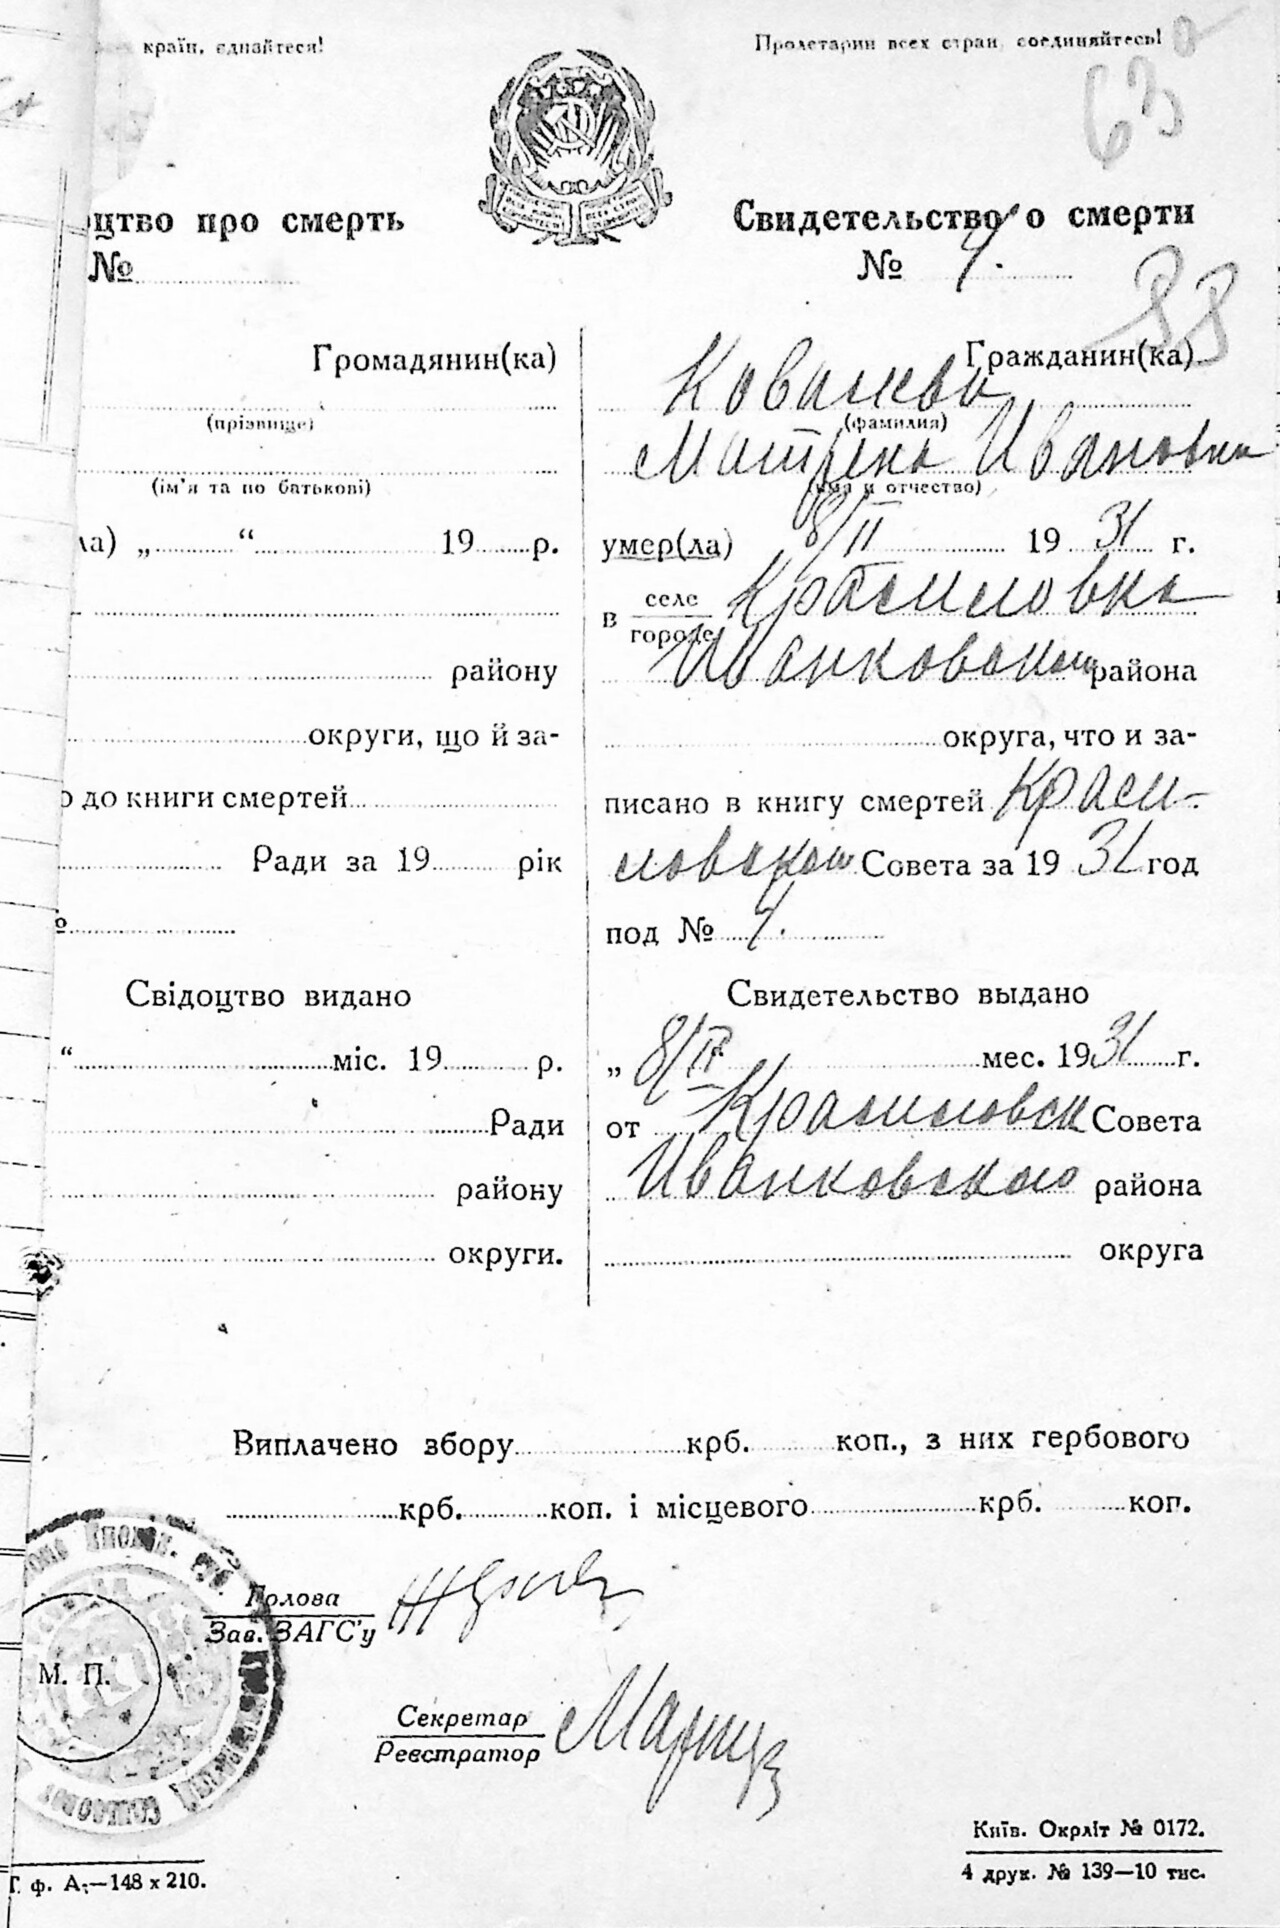 країн, єднайтеся!
Пролетарии всех стран, соединяйтесь!
63
оцтво про смерть
№
Свидетельство о смерти
№ 4.
33
Громадянин(ка)
(прізвище)
(ім'я та по батькові)
ла) „ “ 19 р.
району
округи, що й за-
о до книги смертей
Ради за 19 рік
Свідоцтво видано
“ міс. 19 р.
Ради
району
округи.
Гражданин(ка)
Ковалева
(фамилия)
Матрена Ивановна
(имя и отчество)
умер(ла) 8/II 1931 г.
в селе
городе Красиловка
Иванковском района
округа, что и за-
писано в книгу смертей Краси-
ловском Совета за 1931 год
под № 4.
Свидетельство выдано
„ 8/IV мес. 1931 г.
от Красиловск Совета
Иванковского района
округа
Виплачено збору крб. коп., з них гербового
крб. коп. і місцевого крб. коп.
Голова
Зав. ЗАГС'у
М. П.
Секретар
Реєстратор
Київ. Окрліт № 0172.
4 друк. № 139—10 тис.
ф. А;—148 х 210.